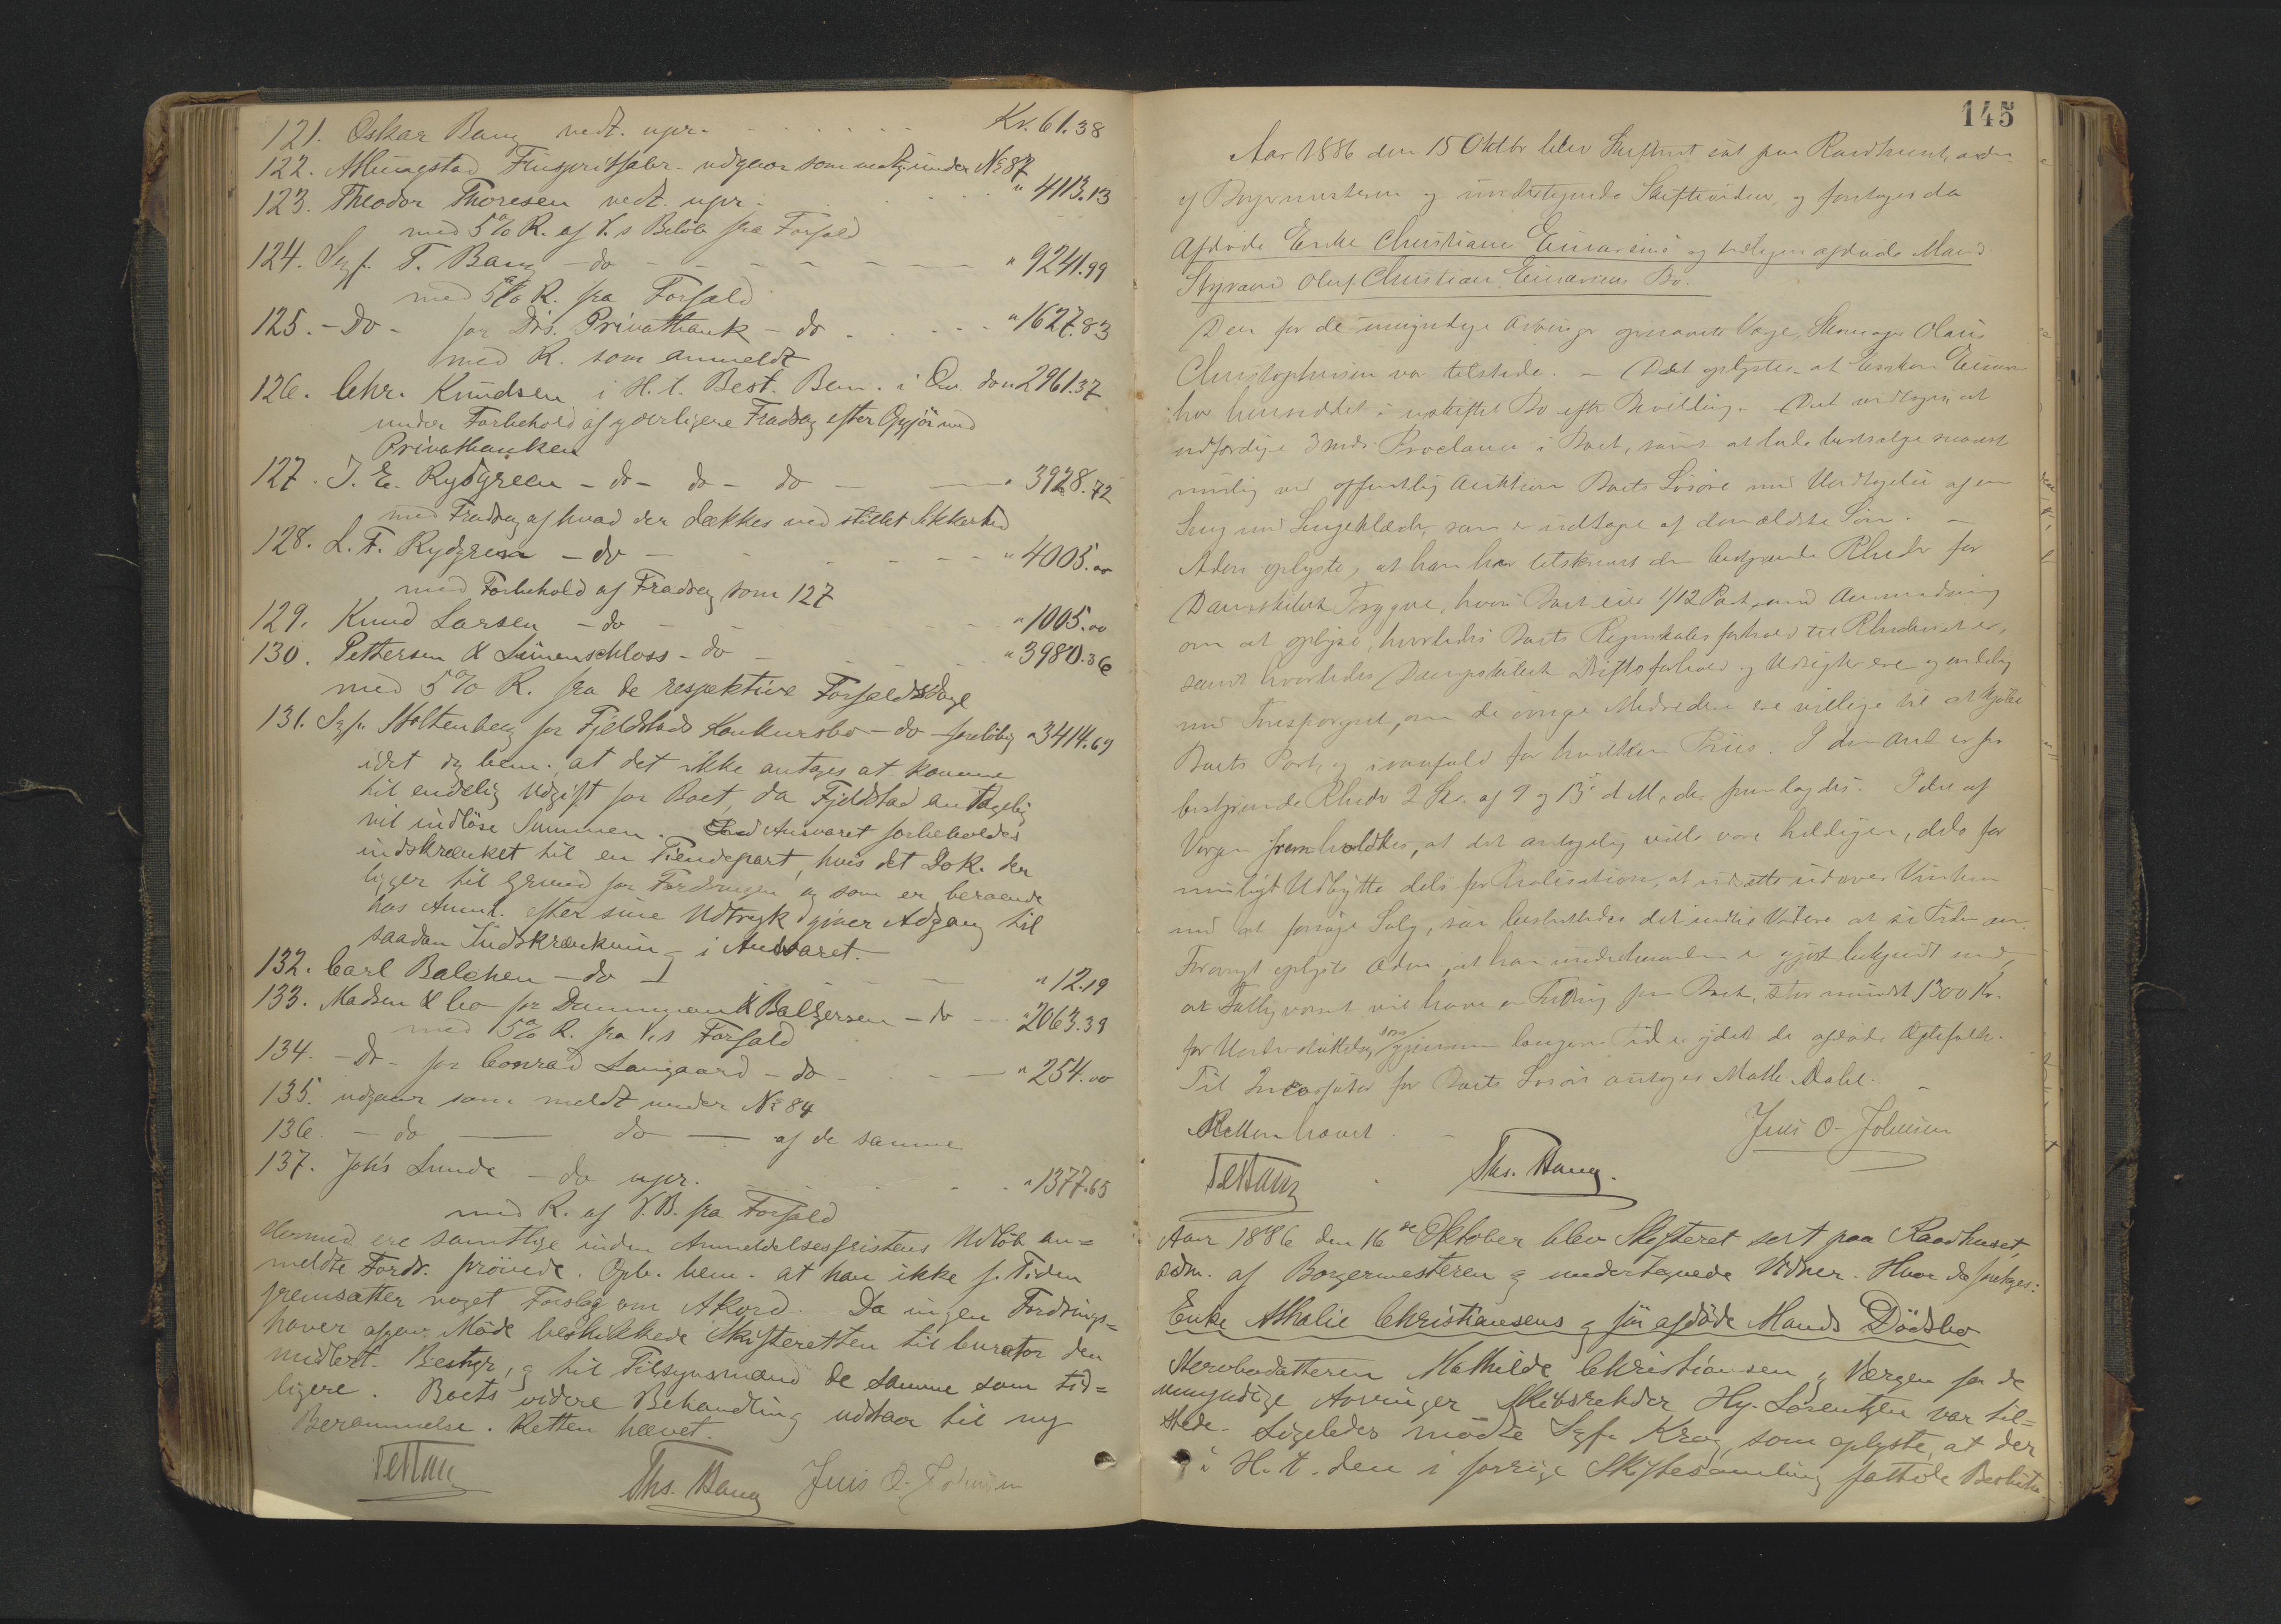 121. Oskar Bang vedt. upr. Kr. 61.38
122. Finspritfabr. udgaar som under No 87
123. Theodor Thoresen vedt. upr. " 4113.13
med 5% R. af V.s Beløb fra Forfald
124. Sagf. T. Bang - do - " 9241.99
med 5% R. fra Forfald
125. - Do - for Drs. Privatbank - do " 1627.83
med R. som anmeldt
126. Chr. Knudsen i H. t. Best. Bem. i Ov. do " 2961.37
under Forbehold af yderligere Fradrag efter Opgjør med
Privatbanken
127. J. E. Rydgreen - do - do - do - " 3928.72
med Fradrag af hvad der dækkes ved stillet Sikkerhed
128. L. F. Rydgreen - do - " 4005.00
med Forbehold af Fradrag som 127
129. Knud Larsen - do - " 1005.00
130. Pettersen & Linnenschloss - do " 3980.36
med 5% R. fra de respektive Forfaldsdage
131. Sagf. Stoltenberg for Fjeldstads Konkursbo - do - foreløbig " 3414.69
idet dg bem. at det ikke antages at komme
til endelig Udgift for Boet, da Fjeldstad antagelig
vil indløse Summen. Ansvaret forbeholdes
indskrænket til en Tiendepart, hvis det Dok. der
ligger til Grund for Fordringen og som er beroende
hos Anm. efter sine Udtryk giver Adgang til
saadan Indskrænkning i Ansvaret.
132. Carl Balchen - do " 12.19
133. Madsen & Co for & Balgersen - do " 2063.39
med 5% R. fra V.s Forfald
134. - do - for Conrad Langaard - do - " 254.00
135. udgaar som meldt under No 84
136. - do - do - af de samme
137. Johs Lunde - do upr. " 1377.65
med R. af V.B. fra Forfald
Hermed ere samtlige inden Anmeldelsesfristens Udløb an=
meldte Fordr. prøvede. Opb. bem. at han ikke f. Tiden
fremsætter noget Forslag om Akord. Da ingen Fordrings=
haver afgav Møde beskikkede Skifteretten til Curator den
midlert. Bestyr, og til Tilsynsmænd de samme som tid=
ligere. Boets videre Behandling udstaar til ny
Berammelse. Retten hævet.
Ths. Haug Jens O. Johnsen
145
Aar 1886 den 15 Oktbr blev Skifteret sat paa Raadhuset, adm.
af Borgermesteren og undertegnede Skiftevidner, og foretoges da
Afdøde Enke Christiane Einarsens og tidligere afdøde Mand
Styrmand Oluf Christian Einarsens Bo.
Den for de umyndige Arvinger opnævnte Værge, Skomager Olaus
Christophersen var tilstede. - Det oplystes at Enken Einarsen
har hensiddet i uskiftet Bo efter Bevilling. Det vedtoges at
udfærdige 3 mdrs Proclama i Boet, samt at lade bortsælge snarest
mulig ved offentlig Auktion Boets Løsøre med Undtagelse af en
Seng med Sengeklæder, som er udtaget af den ældste Søn. -
Adm. oplyste, at han har tilskrevet den bestyrende Rheder for
Dampskibet Trygve, hvori Boet eier 1/12 Part, med Anmodning
om at oplyse, hvorledes Boets Regnskabsforhold til Rhederiet er,
samt hvorledes Dampskibets Driftsforhold og Udsigter ere og endelig
med Forespørgsel, om de øvrige Medredere ere villige til at kjøbe
Boets Part, og isaafald for hvilken Priis. I den Anl. er fra
bestyrende Rheder 2 Skr. af 9 og 13 d. M, der fremlagdes. Idet af
Værgen fremholdtes, at det antagelig vilde være heldigere, dels for
muligt Udbytte dels for Realisation, at udsætte udover Vinteren
med at forsøge Salg, saa besluttedes det indtil Videre at se Tiden an.
Forøvrigt oplyste Adm., at han underhaanden er gjort bekjendt med,
at Fattigvæsenet vil have en Fordring paa Boet, stor mindst 1300 Kr.
for Understøttelse, som gjennem længere Tid er ydet de afdøde Ægtefolk.
Til Incassator for Boets Løsøre antoges Math. Dahl. -
Retten hævet. - Jens O. Johnsen
Ths. Haug.
Aar 1886 den 16de Oktober blev Skifteret sat paa Raadhuset,
adm. af Borgermesteren og undertegnede Vidner. Hvor da foretoges:
Enke Athalie Christiansens og før afdøde Mands Dødsbo
Stervbodatteren Mathilde Christiansen og Værgen for de
umyndige Arvinger Skibsreder Hy. Lorentzen var til=
stede. Ligeledes mødte Sagf. Krag, som oplyste, at der
i H. t. den i forrige Skiftesamling fattede Beslutn.